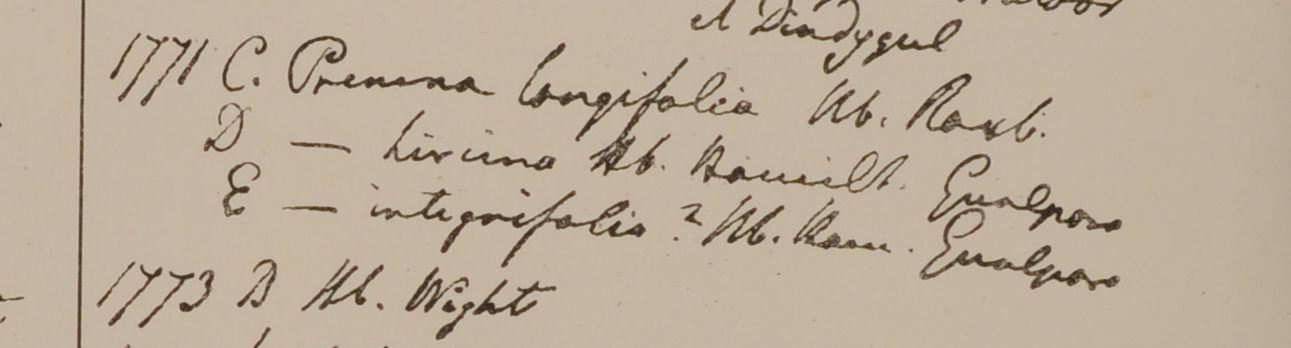 et Dindygul
1771 C. Premna longifolia Hb. Roxb.
D — hircina Hb. Hamilt. Gualpara
E — integrifolia? Hb. Ham. Gualpara
1773 B Hb. Wight